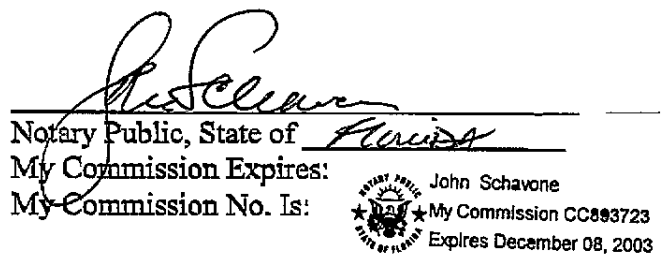 John Schavone
Notary Public, State of Florida
My Commission Expires:
My Commission No. Is:
NOTARY PUBLIC
STATE OF FLORIDA
John Schavone
My Commission CC893723
Expires December 08, 2003